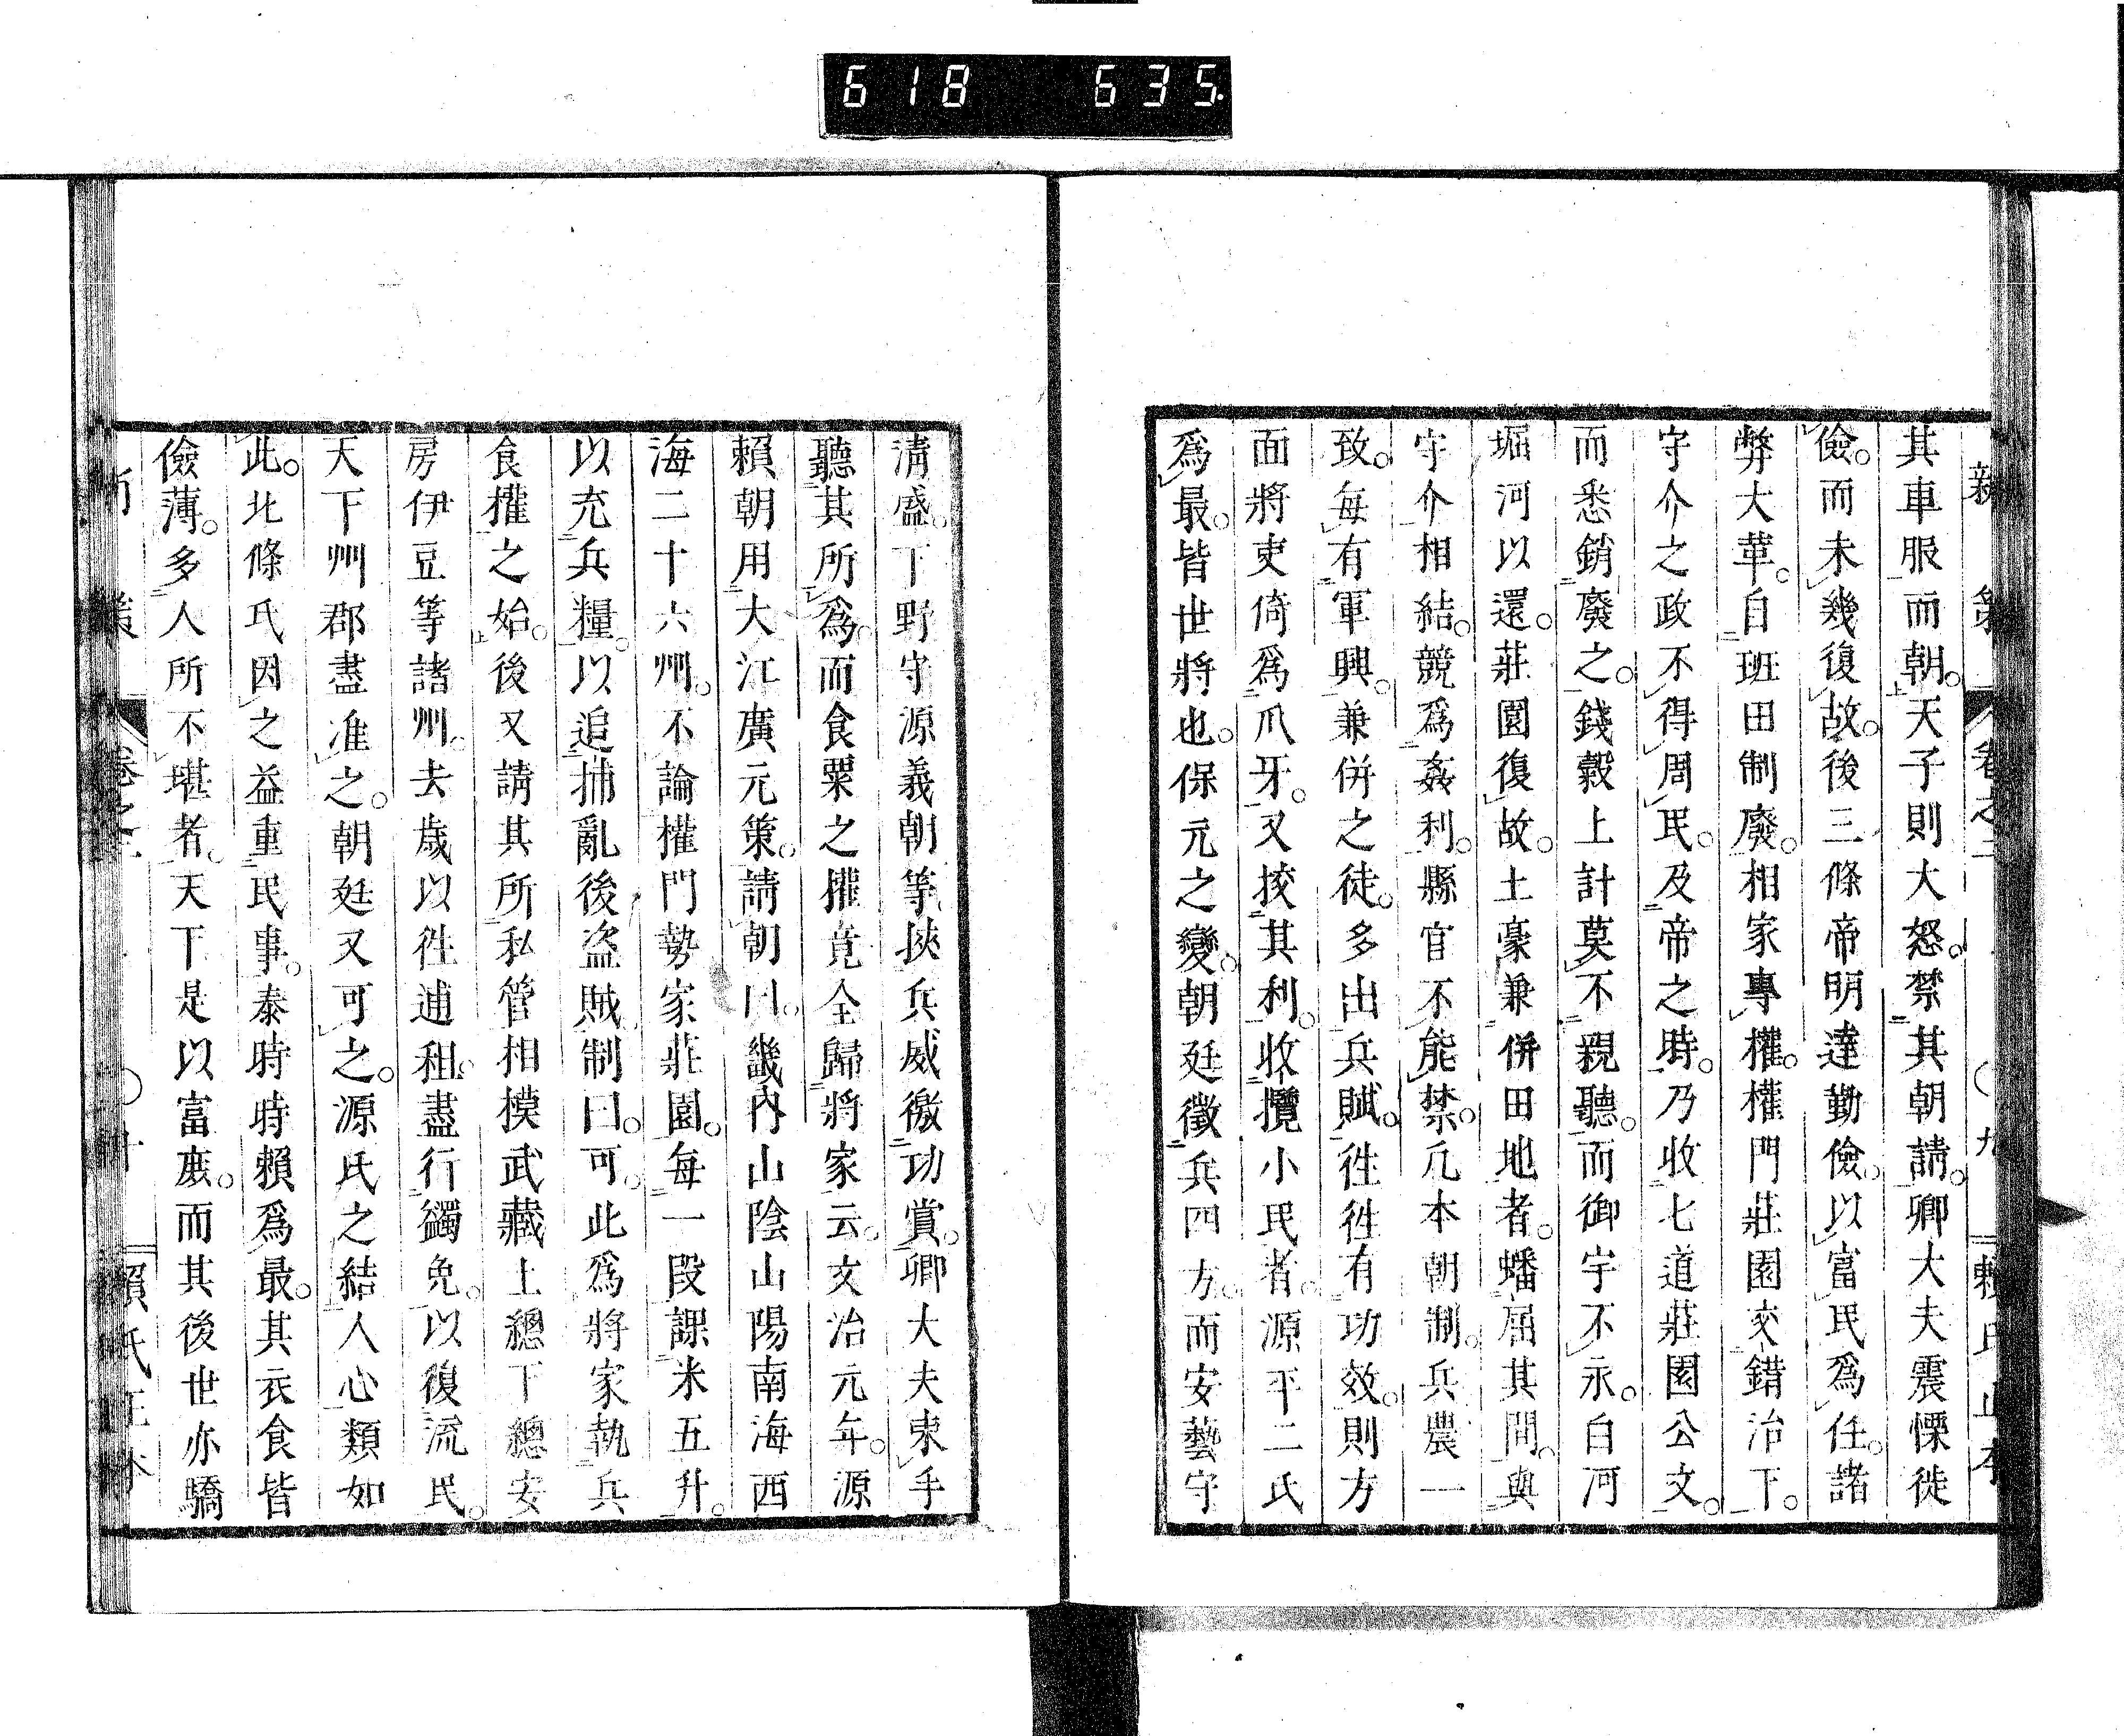 618 635.
新策 卷之二 〇九 賴氏正本
其車服而朝。天子則大怒。禁其朝請。卿大夫震慄徙
儉。而未幾復故。後三條帝明達勤儉。以富民爲任。諸
弊大革。自班田制廢。相家專權。權門莊園交錯治下。
守介之政不得周民。及帝之時。乃收七道莊園公文。
而悉銷廢之。錢穀上計莫不親聽。而御宇不永。白河
堀河以還。莊園復故。土豪兼併田地者。蟠屈其間。與
守介相結。競爲姦利。縣官不能禁。凡本朝制。兵農一
致。每有軍興。兼併之徒。多出兵賦。徃徃有功效。則方
面將吏倚爲爪牙。又挍其利。收攬小民者。源平二氏
爲最。皆世將也。保元之變。朝廷徵兵四方。而安藝守
淸盛。下野守源義朝等挾兵威徼功賞。卿大夫束手
聽其所爲。而食粟之權竟全歸將家云。文治元年。源
賴朝用大江廣元策。請朝曰。畿內山陰山陽南海西
海二十六州。不論權門勢家莊園。每一段課米五升。
以充兵糧。以追捕亂後盜賊。制曰。可。此爲將家執兵
食權之始。後又請其所私管相模武藏上總下總安
房伊豆等諸州。去歲以徃逋租。盡行蠲免。以復流民。
天下州郡盡准之。朝廷又可之。源氏之結人心類如
此。北條氏因之益重民事。泰時時賴爲最。其衣食皆
儉薄。多人所不堪者。天下是以富庶。而其後世亦驕
新策 卷之二 〇十 賴氏正本